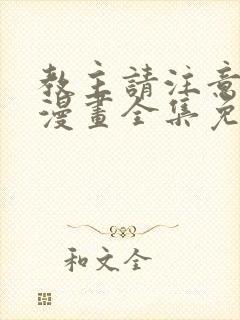 教主請注意
漫畫全集免
和文全